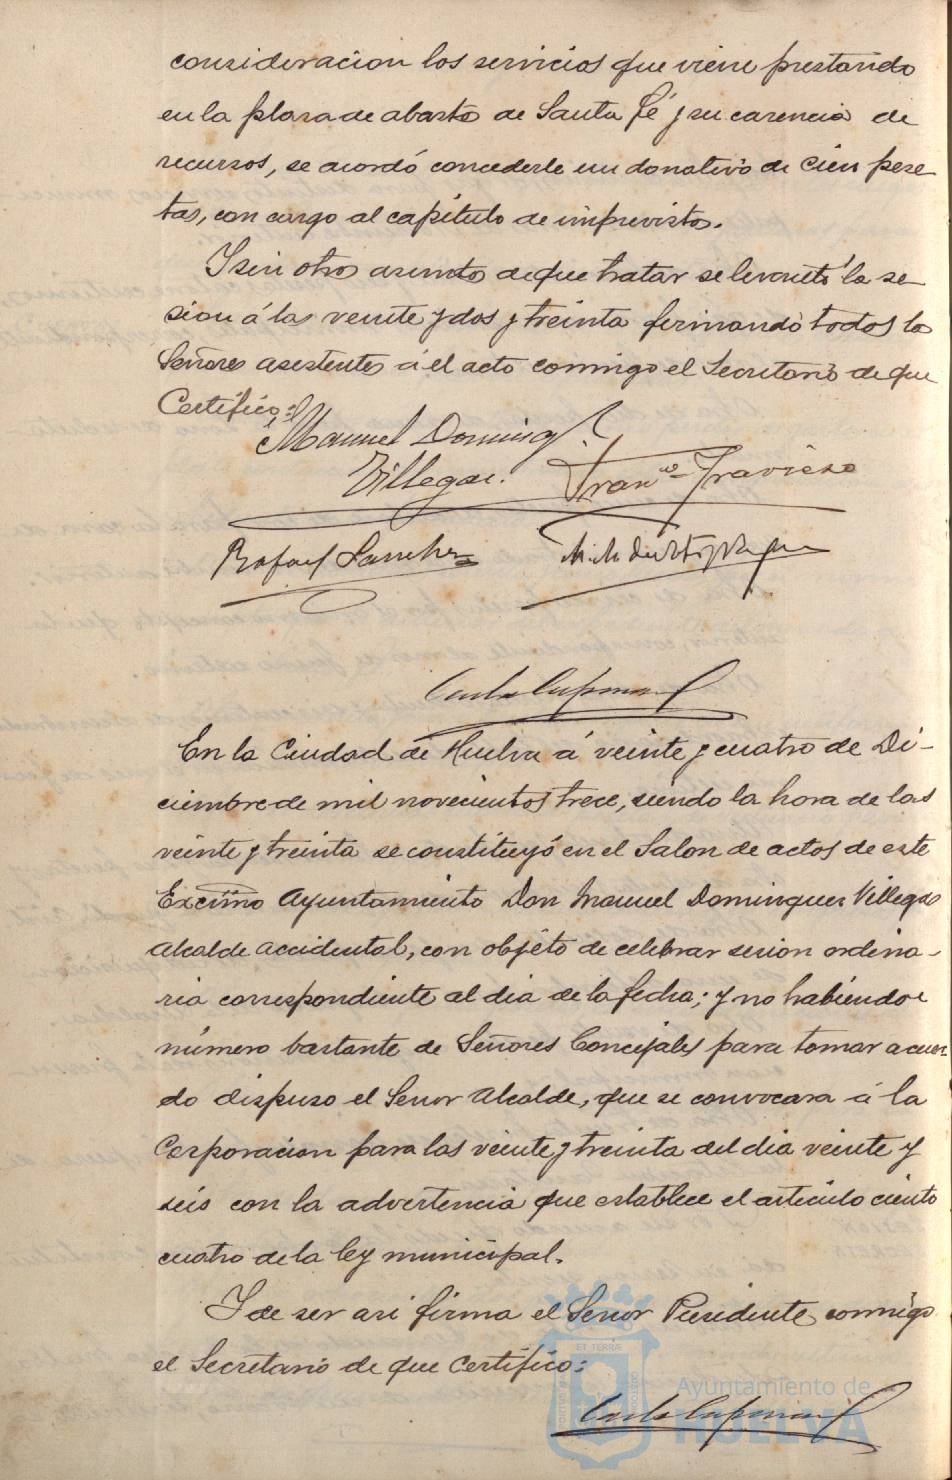 consideracion los servicios que viene prestando
en la plasa de abasto de Santa Fé y su carencia de
recursos, se acordó concederle un donativo de cien pese-
tas, con cargo al capítulo de imprevistos.
Y sin otro asunto de que tratar se levantó la se-
sion á las veinte y dos y treinta firmando todos los
Señores asistentes á el acto conmigo el Secretario de que
Certifico:
Manuel Doming
Villegas. Franco Travieso
Rafael Sanchez
En la Ciudad de Huelva á veinte y cuatro de Di-
ciembre de mil novecientos trece, siendo la hora de las
veinte y treinta se constituyó en el Salon de actos de este
Excmo Ayuntamiento Don Manuel Dominguez Villegas
Alcalde accidental, con objéto de celebrar sesion ordina-
ria correspondiente al dia de la fecha; y no habiendo
número bastante de Señores Concejales para tomar acuer-
do dispuso el Señor Alcalde, que se convocara á la
Corporacion para las veinte y treinta del dia veinte y
seis con la advertencia que establece el articulo ciento
cuatro de la ley municipal.
Y de ser asi firma el Señor Presidente conmigo
el Secretario de que certifico:
ET TERRÆ
Ayuntamiento de
HUELVA